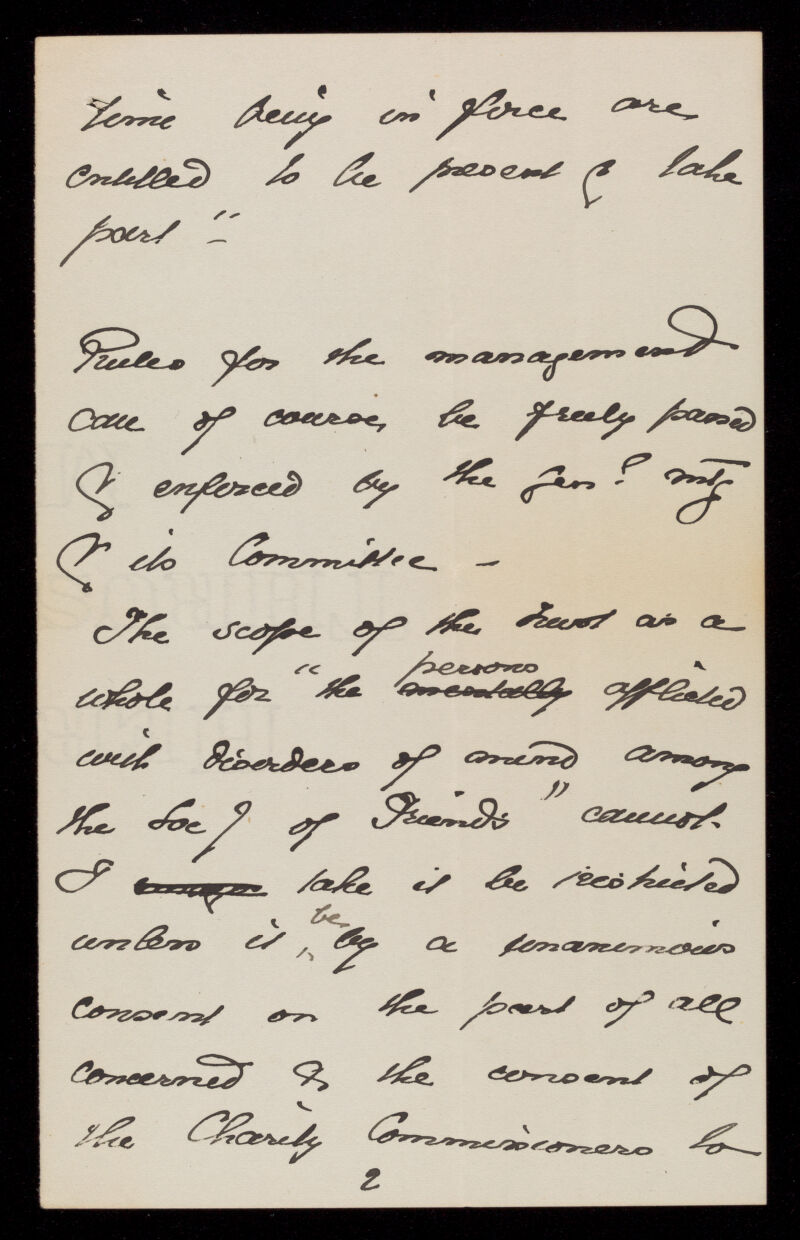 time being in force are
entitled to be present & take
part"
Rules for the management
can of course, be freely passed
& enforced by the Genl mtg
& its Committee -
The scope of the trust as a
persons
whole for "the mentally afflicted
with disorders of mind among
the Socy of Friends" cannot
I take it be restricted
be
unless it by a unanimous
consent on the part of all
concerned & the consent of
the Charity Commissioners to
2